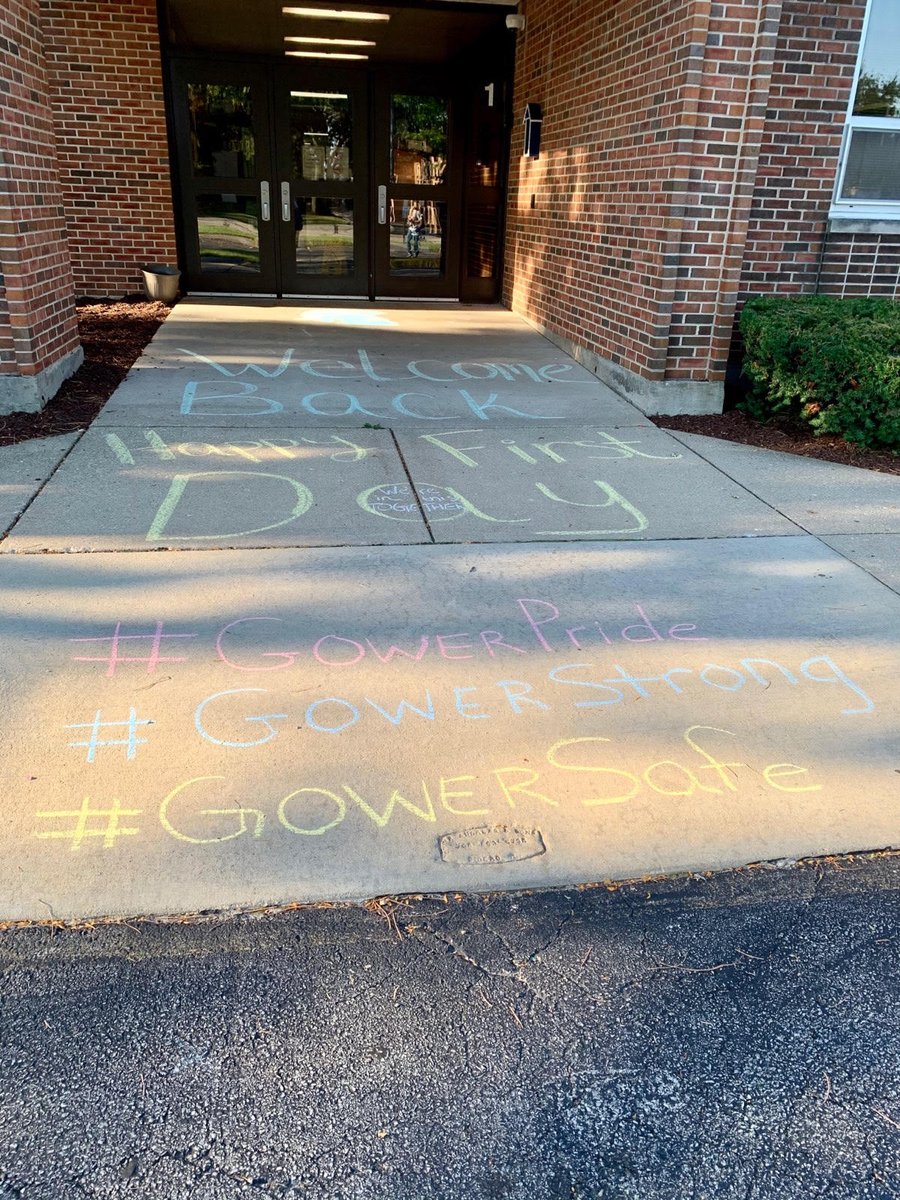 1
Welcome
Back
Happy First
Day
We're
in this
TOGETHER
#GOWERPride
#GOWERStrong
#GOWERSafe